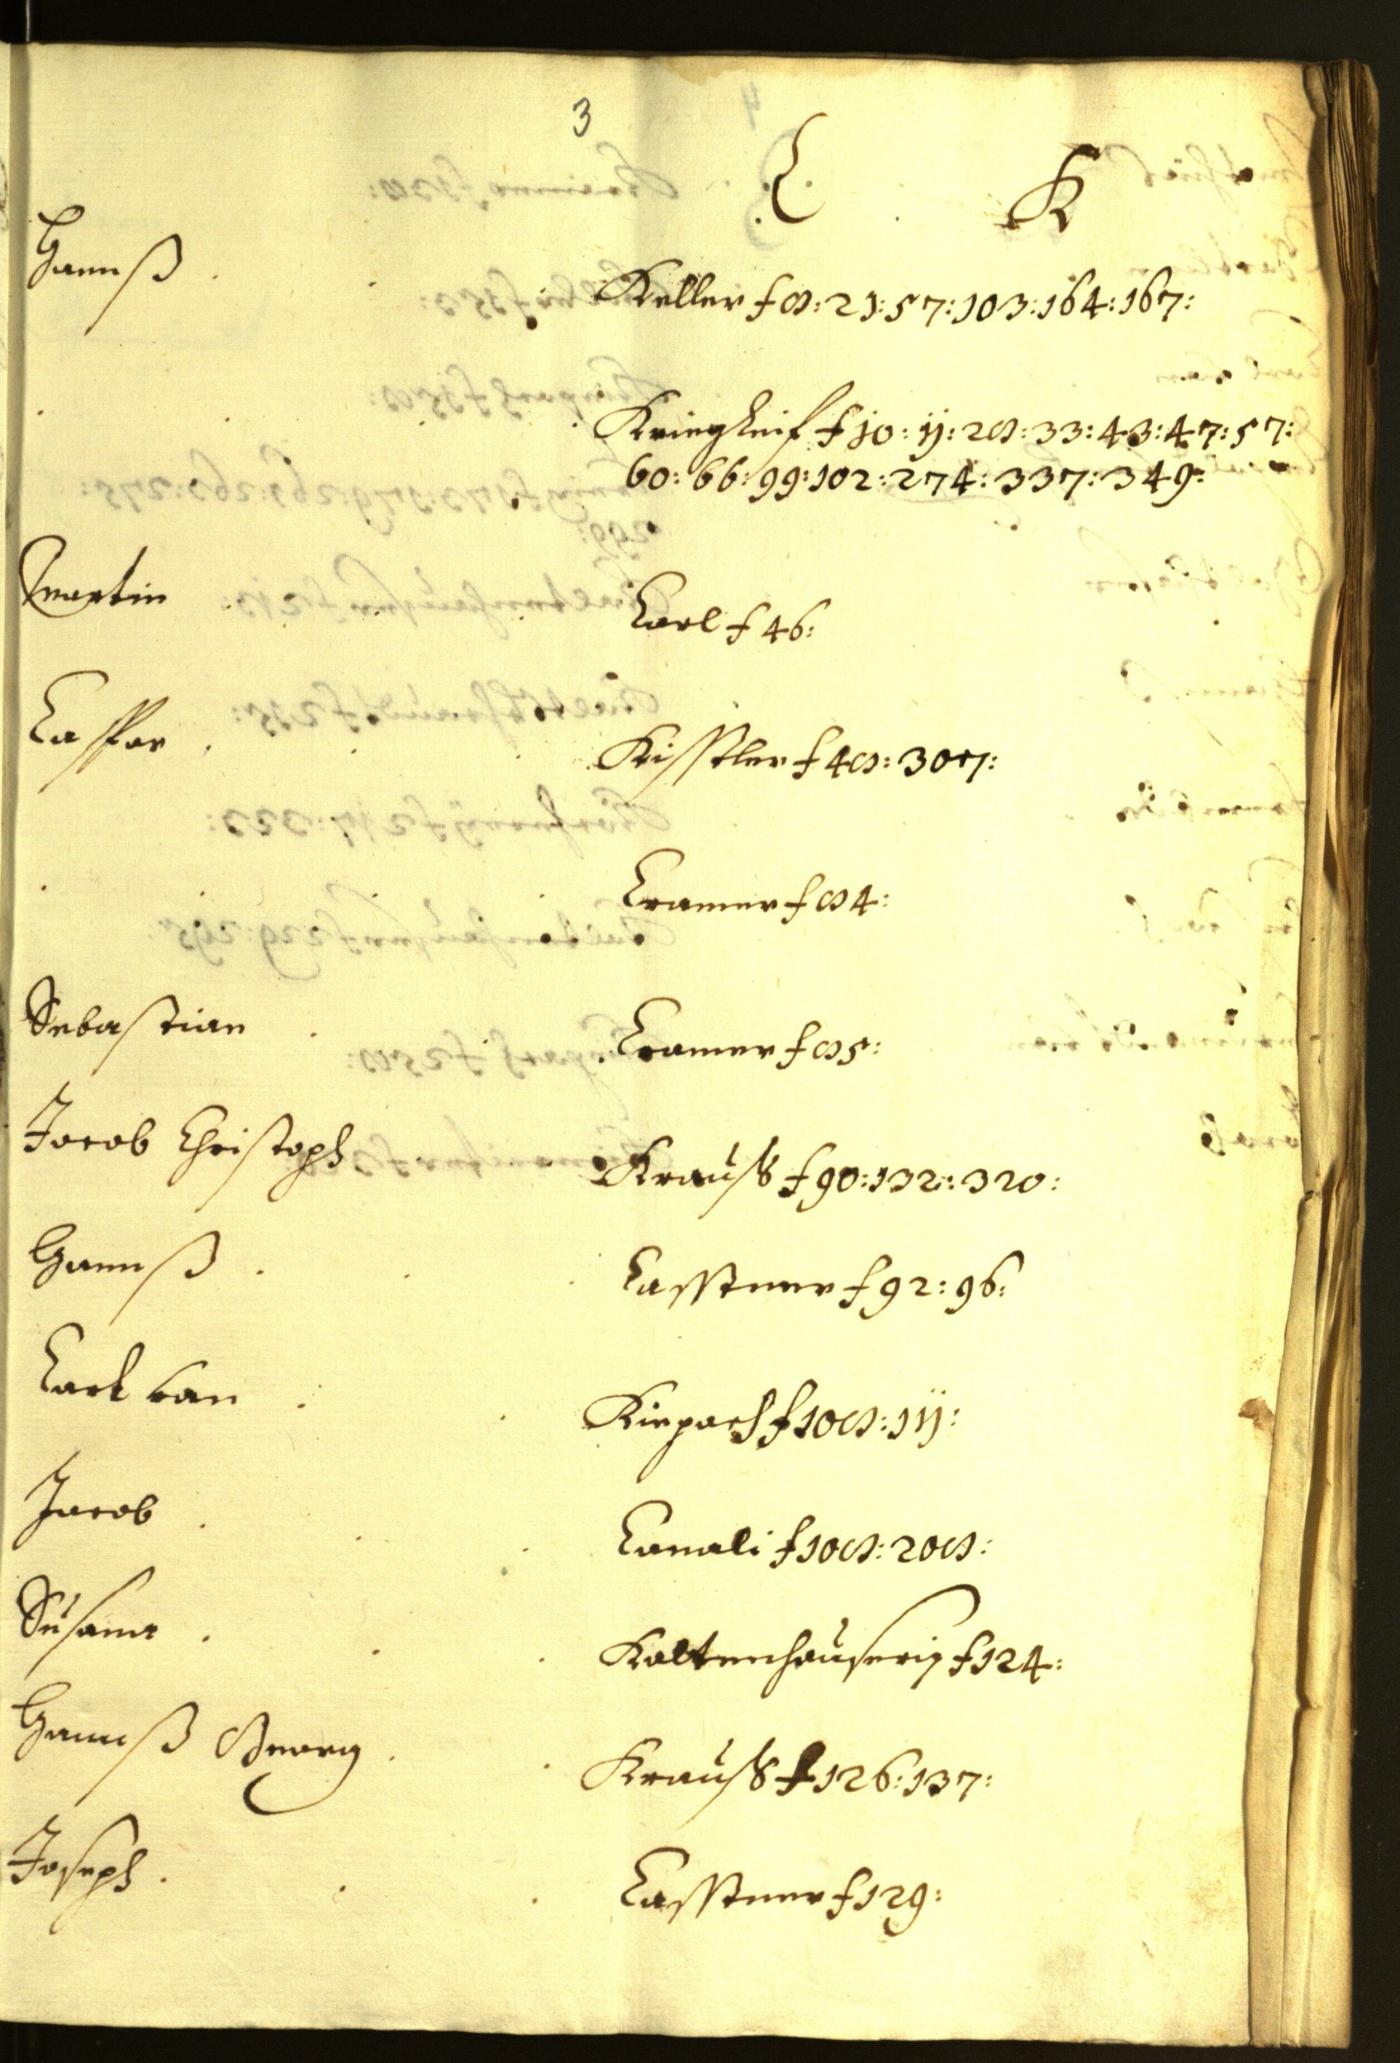 3
C K
Hannß Keller f 8: 21: 57: 103: 164: 167:
Kriegheif f 10: 11: 28: 33: 43: 47: 57:
60: 66: 99: 102: 274: 337: 349:
Martin Carl f 46:
Casspar Kisstler f 48: 307:
Cramer f 84:
Sebastian Cramer f 85:
Jacob Christoph Krauß f 90: 132: 320:
Hannß Casstner f 92: 96:
Carl van Kiepach f 108: 111:
Jacob Canali f 108: 208:
Susana Kaltenhauserin f 124:
Hannß Georg Krauß f 126: 137:
Joseph Casstner f 129: